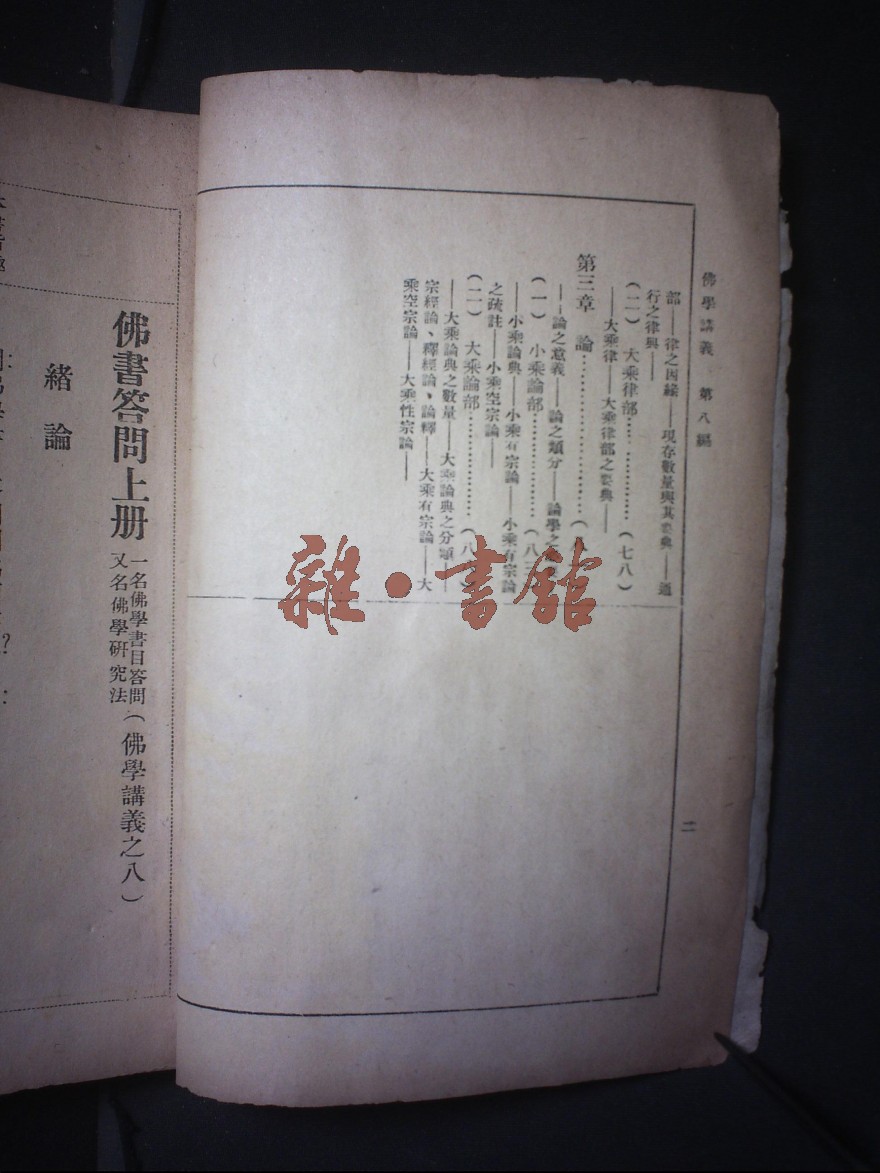 佛學講義 第八編
二
部——律之因緣——現存數量與其要典——通
行之律典——
(二) 大乘律部…………………(七八)
——大乘律——大乘律部之要典——
第三章 論…………………………(八
——論之意義——論之類分——論學之
(一) 小乘論部…………………(八
——小乘論典——小乘有宗論——小乘有宗論
之疏註——小乘空宗論——
(二) 大乘論部…………………(八
——大乘論典之數量——大乘論典之分類——
宗經論、釋經論、論釋——大乘有宗論——大
乘空宗論——大乘性宗論——
雜·書館
佛書答問上册 一名佛學書目答問 又名佛學研究法 (佛學講義之八)
緒論